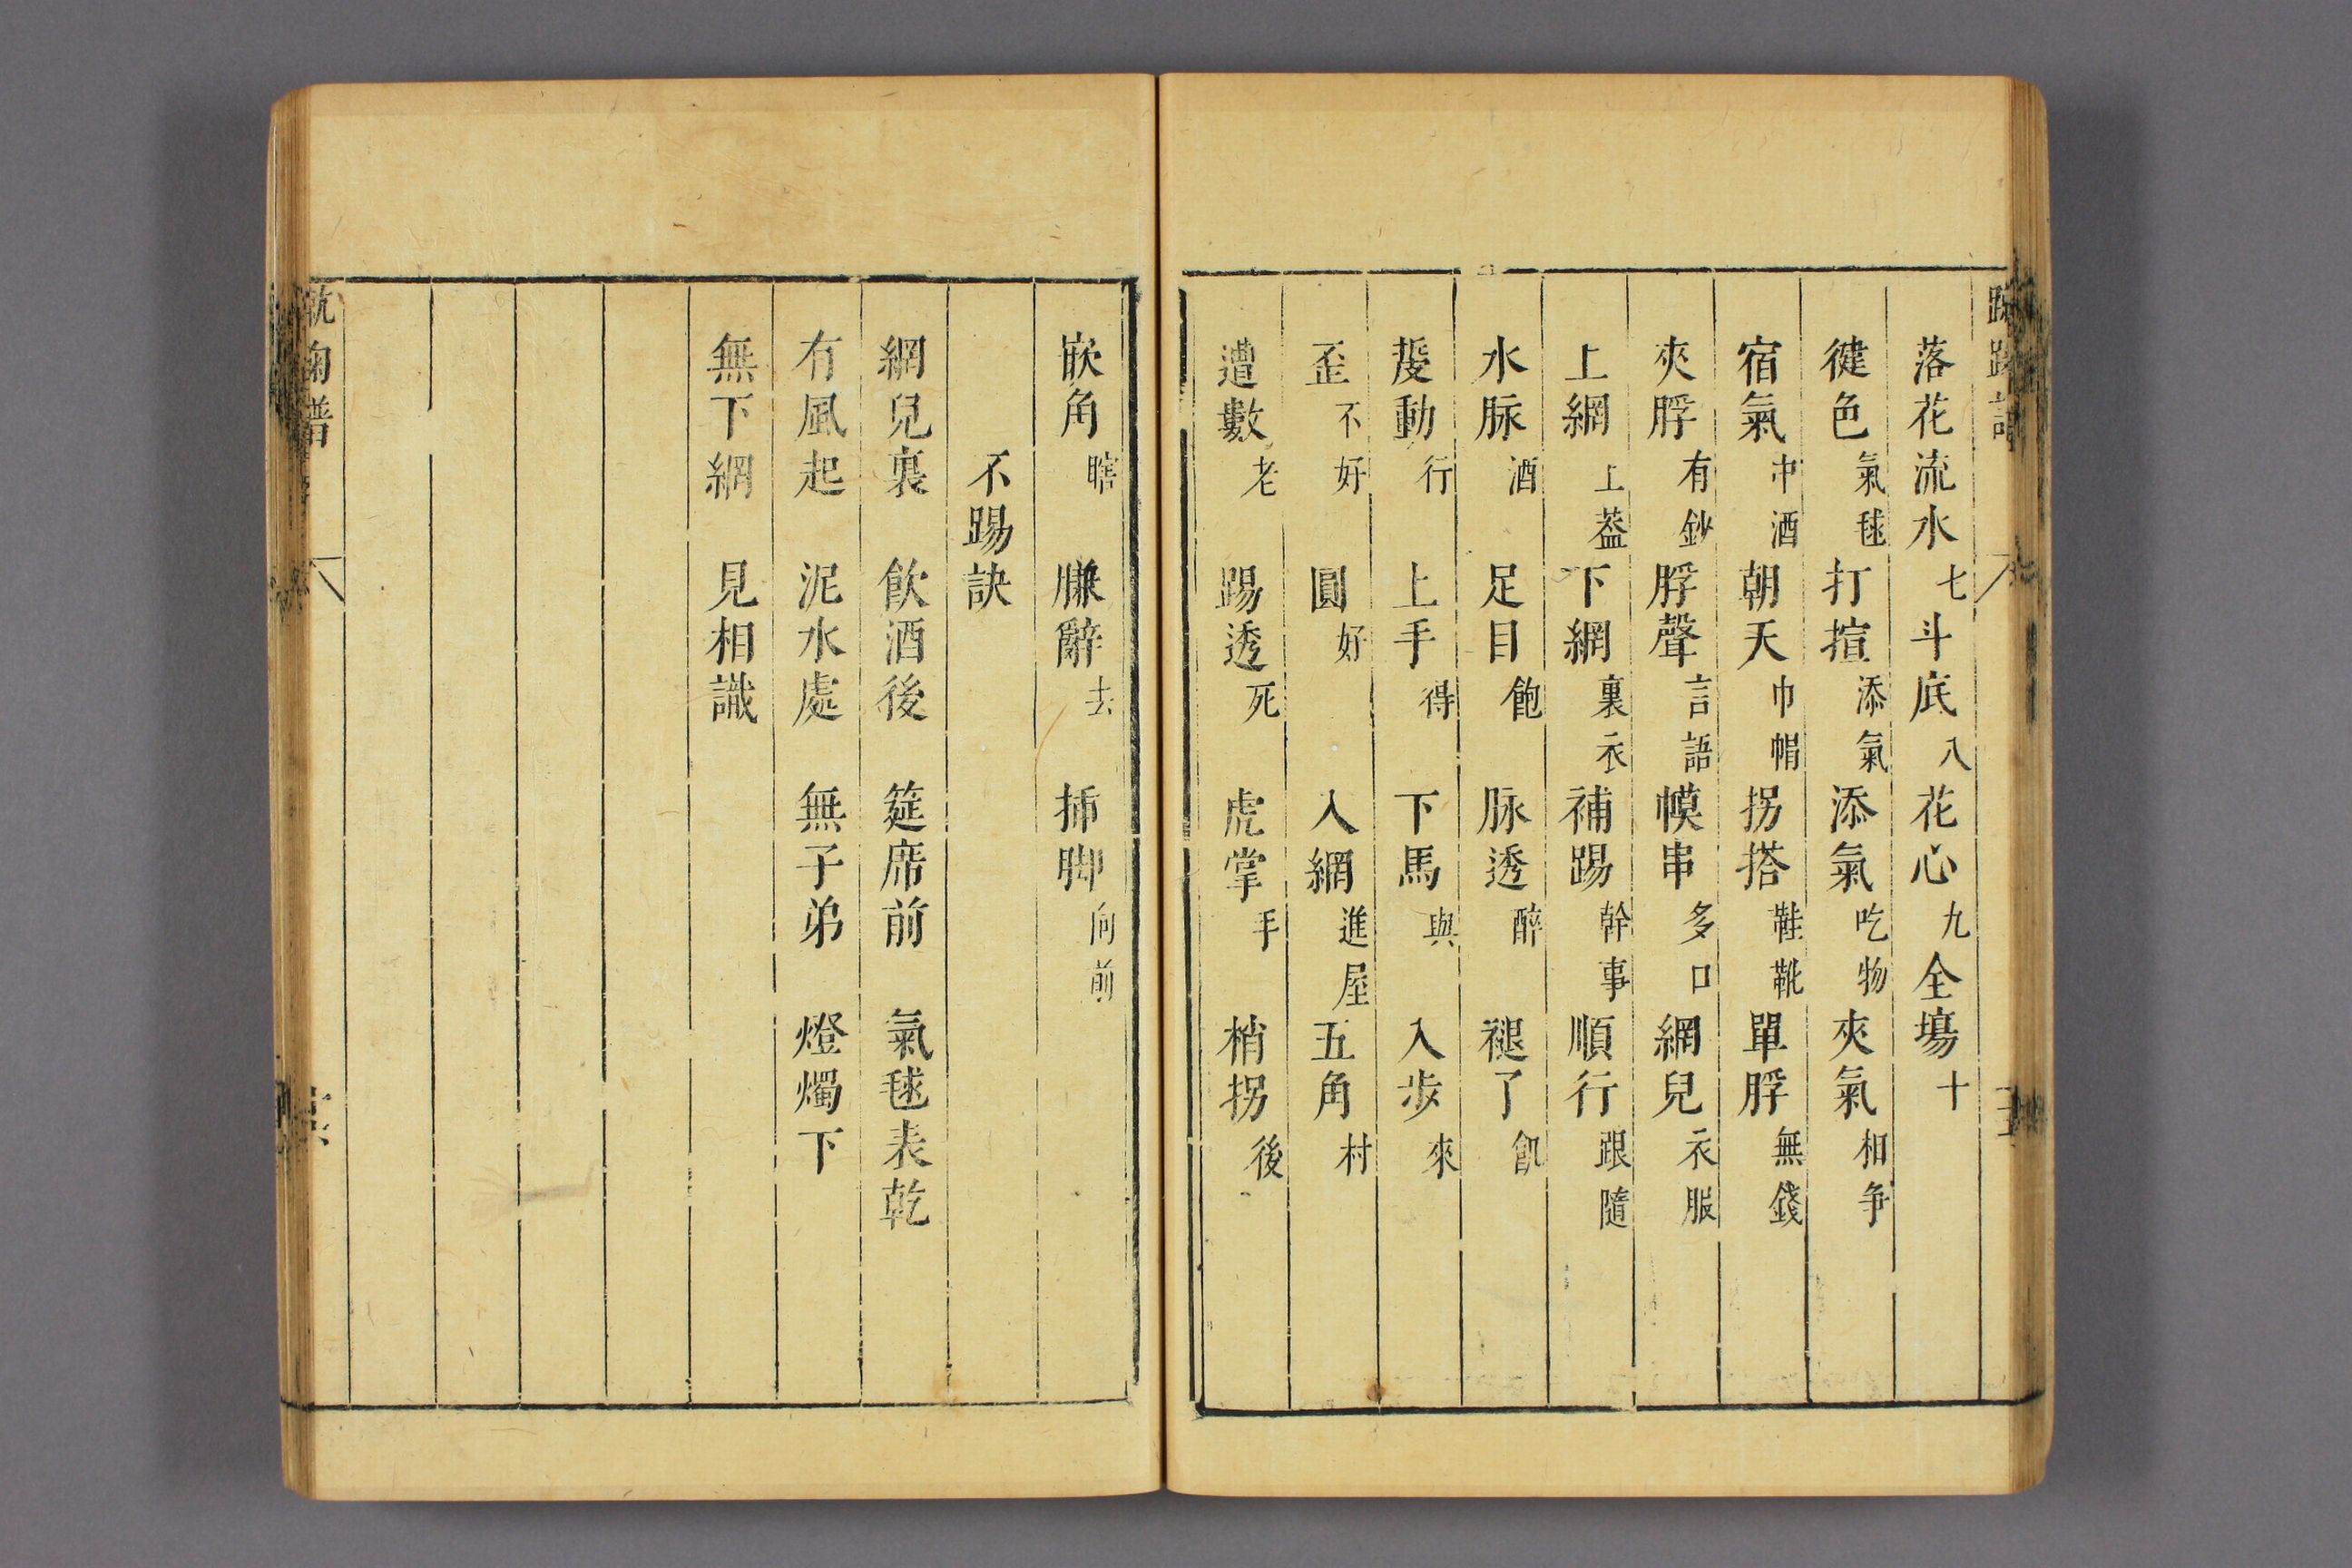 落花流水七斗底八花心九全場十
健色氣毬打揎添氣添氣吃物夾氣相争
宿氣中酒朝天巾帽拐搭鞋靴單脬無錢
夾脬有鈔脬聲言語幙串多口網兒衣服
上網上葢下網裏衣補踢幹事順行跟隨
水脉酒足目飽脉透醉褪了飢
動行上手得下馬與入步來
歪不好圓好入網進屋五角村
遭數老踢透死虎掌手梢拐後
嵌角瞎賺辭去揷脚向前
不踢訣
網兒裏飲酒後筵席前氣毬表乾
有風起泥水處無子弟燈燭下
無下網見相識